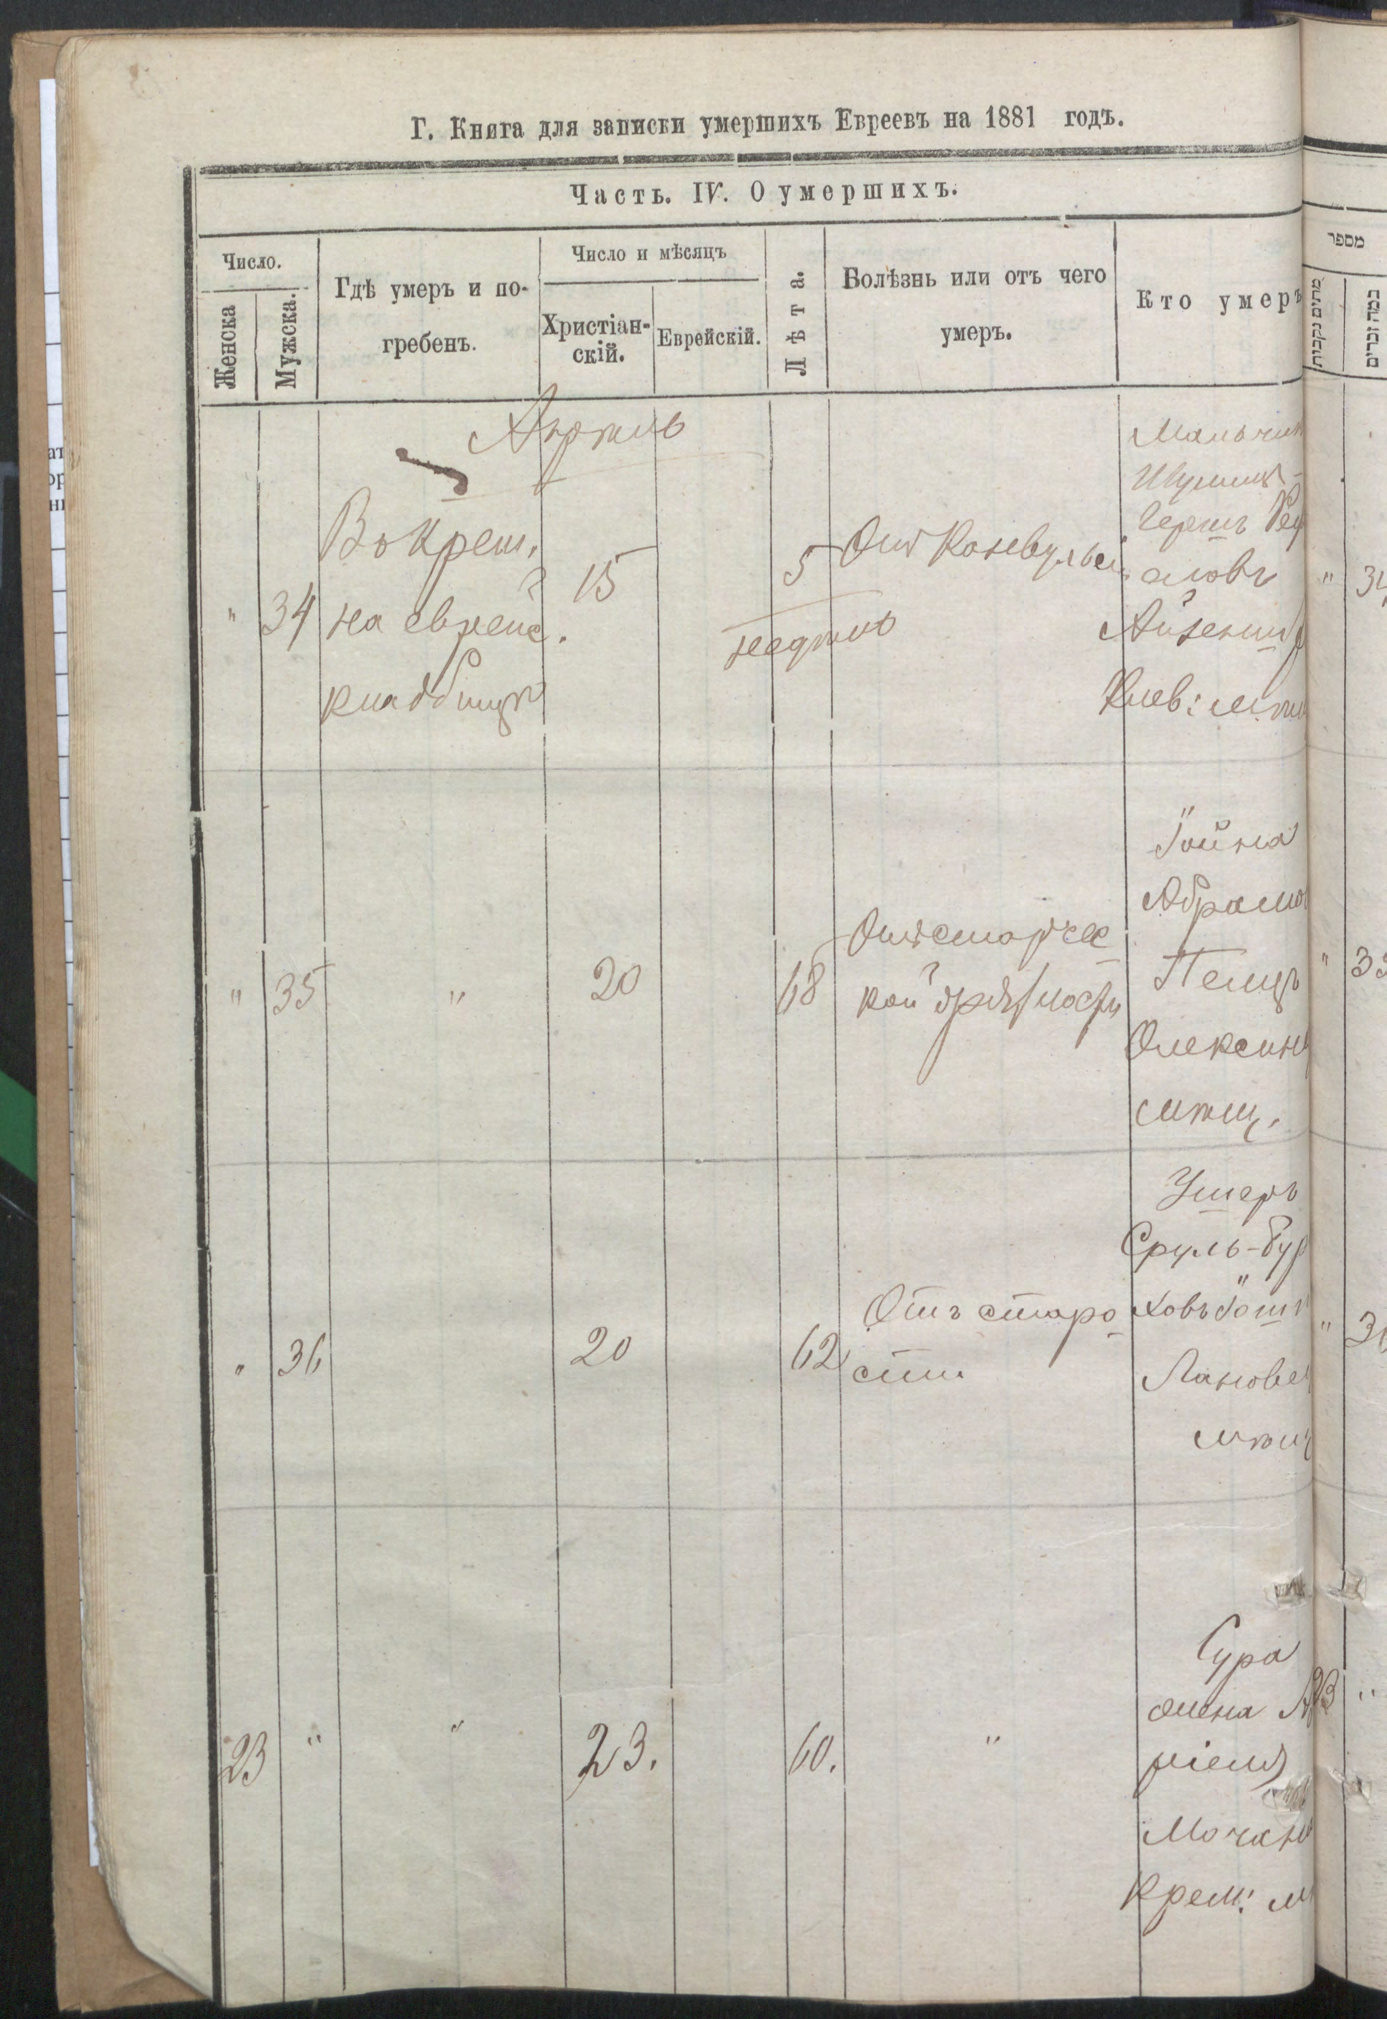 Г. Книга для записки умершихъ Евреевъ на 1881 годъ.
Часть. IV. О умершихъ.
Число.
Женска
Мужска.
Гдѣ умеръ и по-
гребенъ.
Число и мѣсяцъ
Христіан-
скій.
Еврейскій.
Лѣта.
Болѣзнь или отъ чего
умеръ.
Кто умеръ
מספר
מתים נקבות
כמה זכרים
Апрѣль
" 34
Въ Крем.
на еврейс.
кладбищѣ
15
5
недѣль
Отъ Конвульсій
Мальчикъ
Шулимъ-
Герш
аловъ
Айзенш
Клев: мѣщ
" 34
" 35 " 20 68
Отъ старчес
кой дряхлости
Іойна
Абрамо
Пельцъ
Олексин
мѣщ.
"
" 36 20 62
Отъ старо
сти.
Умеръ
Сруль-Бур
ховъ Іош
Лановец
мѣщ
"
23 " " 23. 60. "
Сура
жена А
ріеля
Мочан
Крем: м
23 "